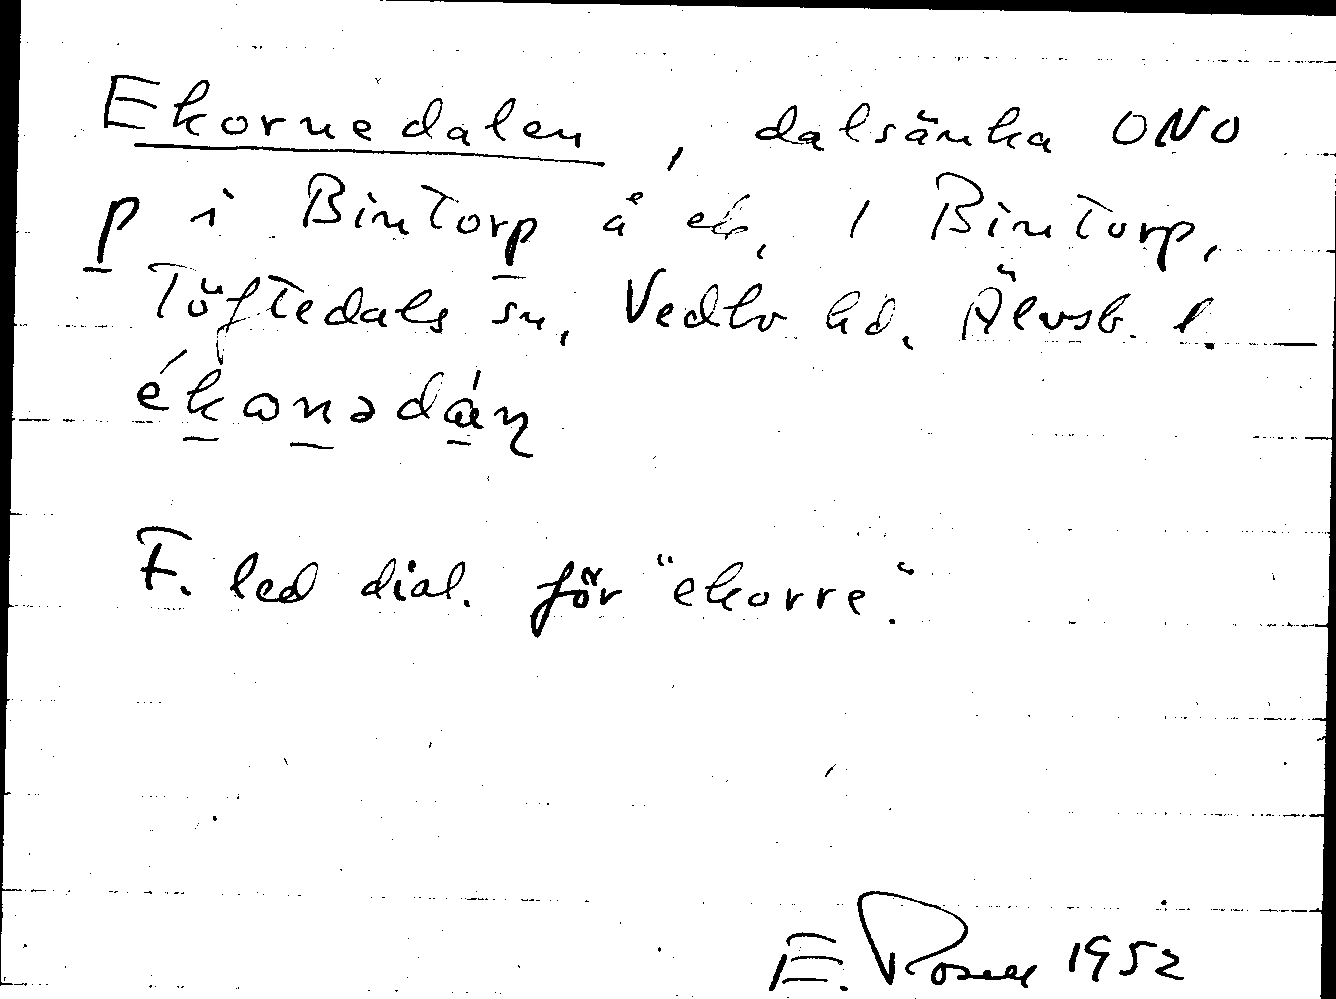 Ekornedalen, dalsänka ONO
p i Bintorp å ek. 1 Bintorp,
Töftedals sn, Vedbo hd, Älvsb. l.
ékɷnədáɳ
F. led dial. för "ekorre".
E. Rosell 1952